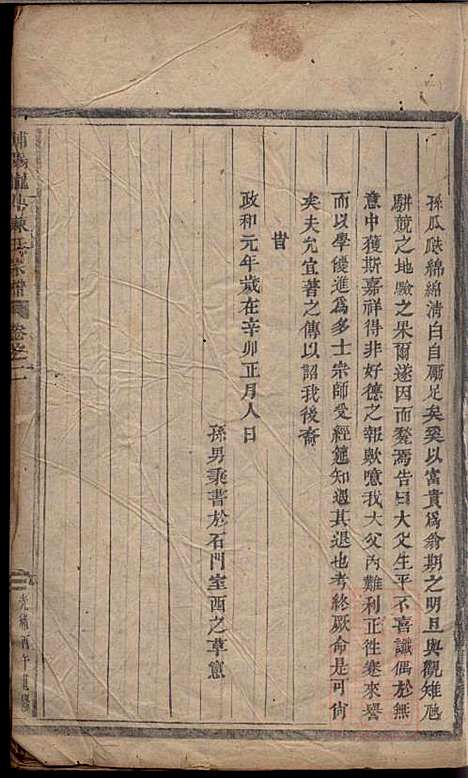 孫瓜瓞綿綿清白自願足矣奚以富貴為翁期之明旦與觀雉兎
駢競之地驗之果爾遂因而窆焉告曰大父生平不喜讖偶於無
意中獲斯嘉祥得非好德之報歟噫我大父內難利正往蹇來譽
而以學優進為多士宗師受經鍾知遇其退也考終厥命是可尚
矣夫允宜著之傳以詔我後裔
旹
政和元年歲在辛卯正月人日
孫男秉書於石門室西之草窻
陳氏宗譜 卷之二
光緒丙午重修